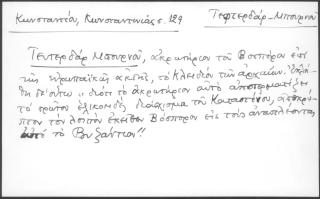 Κωνσταντίου, Κωνσταντινιάς σ. 129
Τεφτερδάρ-Μπουρνού
Τεφτερδάρ Μπουρνού, ἀκρωτήριον τοῦ Βοσπόρου ἐπὶ
τῆς εὐρωπαϊκῆς ἀκτῆς, τὸ Κλειδίον τῶν ἀρχαίων. Ἐκλή-
θη δ' οὕτω „διότι τὸ ἀκρωτήριον αὐτὸ ἀποτερματίζει
τὸ πρῶτον ἑλικοειδὲς διάσχισμα τοῦ Καταστένου, ἀποκρύ-
πτον τὸν λοιπὸν ἐκεῖθεν Βόσπορον εἰς τοὺς ἀναπλέοντας
ἀπὸ τὸ Βυζάντιον!!